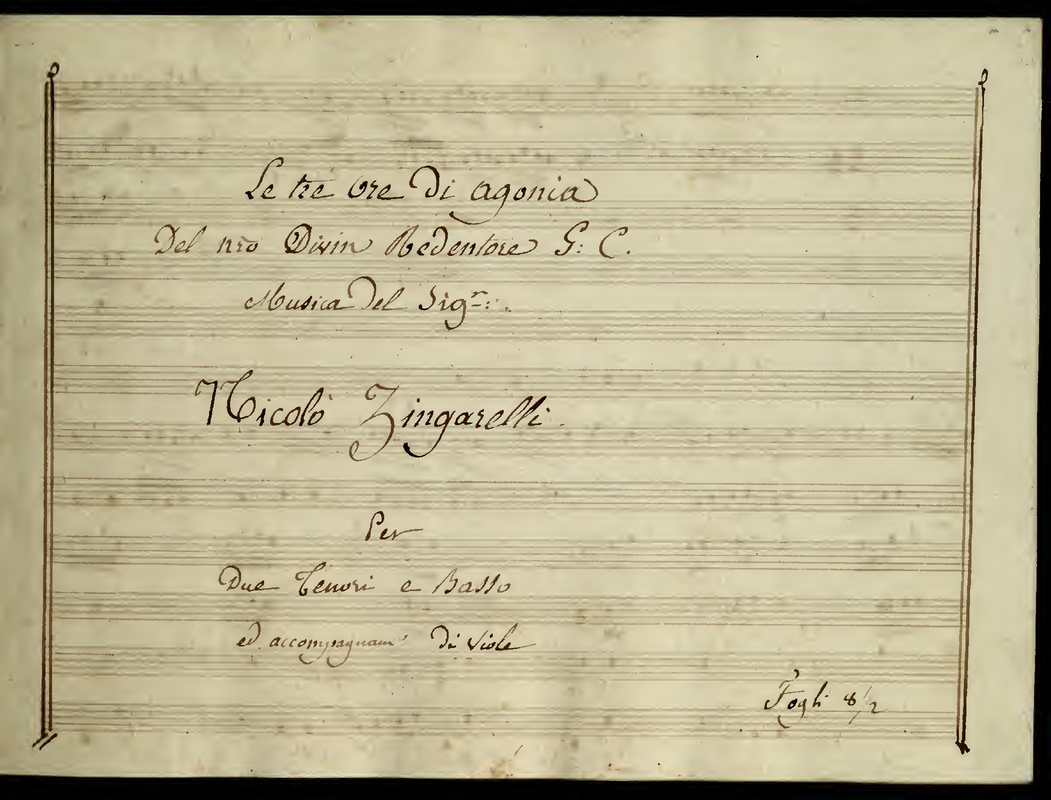 Le tre ore di agonia
Del nro Divin Redentore G: C.
Musica Del Sigr:
Nicolò Zingarelli.
Per
Due Tenori e Basso
ed accompagnam' di Viole
Fogli 8/2